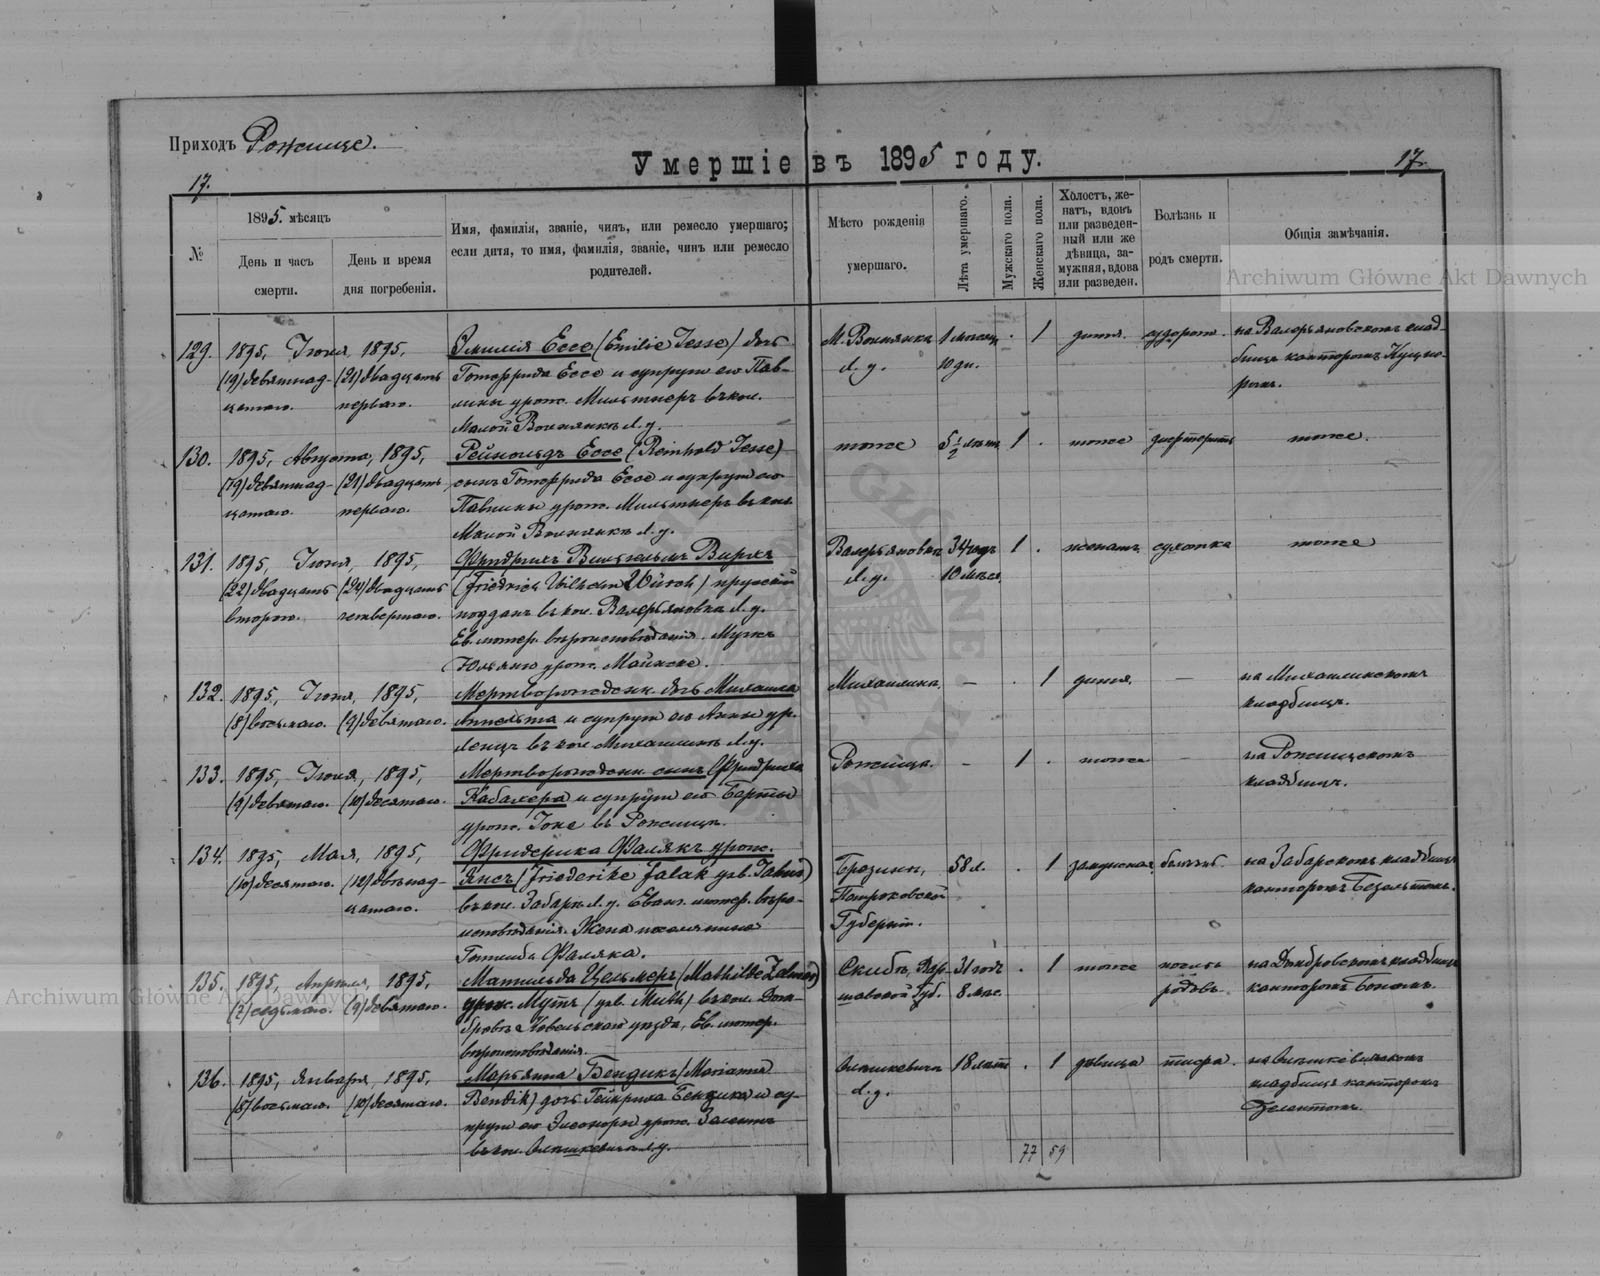 Приходъ Рожище.
Умершіе въ 1895 году.
17.
17.
№
1895. мѣсяцъ
День и часъ смерти.
День и время дня погребенія.
Имя, фамилія, званіе, чинъ, или ремесло умершаго;
если дитя, то имя, фамилія, званіе, чинъ или ремесло
родителей.
Мѣсто рожденія
умершаго.
Лѣта умершаго.
Мужскаго пола.
Женскаго пола.
Холостъ, же-
натъ, вдовъ
или разведен-
ный или же
дѣвица, за-
мужняя, вдова
или разведен.
Болѣзнь и
родъ смерти.
Общія замѣчанія.
Archiwum Główne Akt Dawnych
129. 1895, Іюня, 1895, Эмилія Ессе (Emilie Jesse) дочь М. Волнянка 1 мѣсяц . 1 дитя. судорог. на Валерьяновскомъ клад-
(19) девятнад- (21) двадцать Готфрида Ессе и супруги его Пав- Л. у. 10 дн. бищѣ канторомъ
цатаго. перваго. лины урож. Мильтнеръ въ кол.
Малой Волнянкѣ Л. у.
130. 1895, Августа, 1895, Рейнольдъ Ессе (Reinhold Jesse) тоже 5 1/2 лѣтъ 1 . тоже дифтеритъ тоже.
(19) девятнад- (21) двадцать сынъ Готфрида Ессе и супруги его
цатаго. перваго. Павлины урож. Мильтнеръ въ кол.
Малой Волнянкѣ Л. у.
131. 1895, Іюня, 1895, Фридрихъ Вильгельмъ Вирхъ Валерьяновка 34 года 1 . женатъ сухотка тоже
(22) двадцать (24) двадцать (Friedrich Wilhelm Würch) прусскій Л. у. 10 мѣс.
второго. четвертаго. поддан. въ кол. Валерьяновка Л. у.
Ев. лютер. вѣроисповѣданія. Мужъ
Юльяны урож. Манске.
132. 1895, Іюня, 1895, Мертворожденн. дочь Михаила Михайлинка. — . 1 дитя. — на Михайлинскомъ
(8) восьмаго. (9) девятаго. Аппельта и супруги его Анны ур. кладбищѣ.
Ленцъ въ кол. Михайлинкѣ Л. у.
133. 1895, Іюня, 1895, Мертворожденн. сынъ Фридриха Рожище. — 1 . тоже — на Рожищскомъ
(9) девятаго. (10) десятаго. и супруги его Берты кладбищѣ.
урож. въ Рожищѣ.
134. 1895, Мая, 1895, Фридерика Фалякъ урож. Брезины, 58 л. . 1 замужняя. болѣзнь на Забарскомъ кладбищѣ
(10) десятаго. (12) двѣнад- Янсъ (Friederike Falak урв. ) Петроковской канторомъ
цатаго. въ кол. Забара Л. у. Еванг. лютер. вѣро- Губерніи.
исповѣданія. Жена поселянина
Готлиба Фаляка.
135. 1895, Апрѣля, 1895, Матильда Цельмеръ (Mathilde Zelmer) Скибы, Вар- 31 годъ . 1 тоже послѣ на Домбровскомъ кладбищѣ
(7) седьмаго. (9) девятаго. урож. Мутъ (урв. Muth) въ кол. Дом- шавской Губ. 8 мѣс. родовъ. канторомъ
бровѣ Ковельскаго уѣзда, Ев. лютер.
вѣроисповѣданія.
Archiwum Główne Akt Dawnych
136. 1895, Января, 1895, Марьянна Бендикъ (Marianna 18 лѣтъ . 1 дѣвица тифа.
(8) восьмаго. (10) десятаго. Bendik) дочь Гейнриха Бендика и су- Л. у. кладбищѣ канторомъ
пруги его Элеоноры урож.
въ кол. Л. у.
77 59